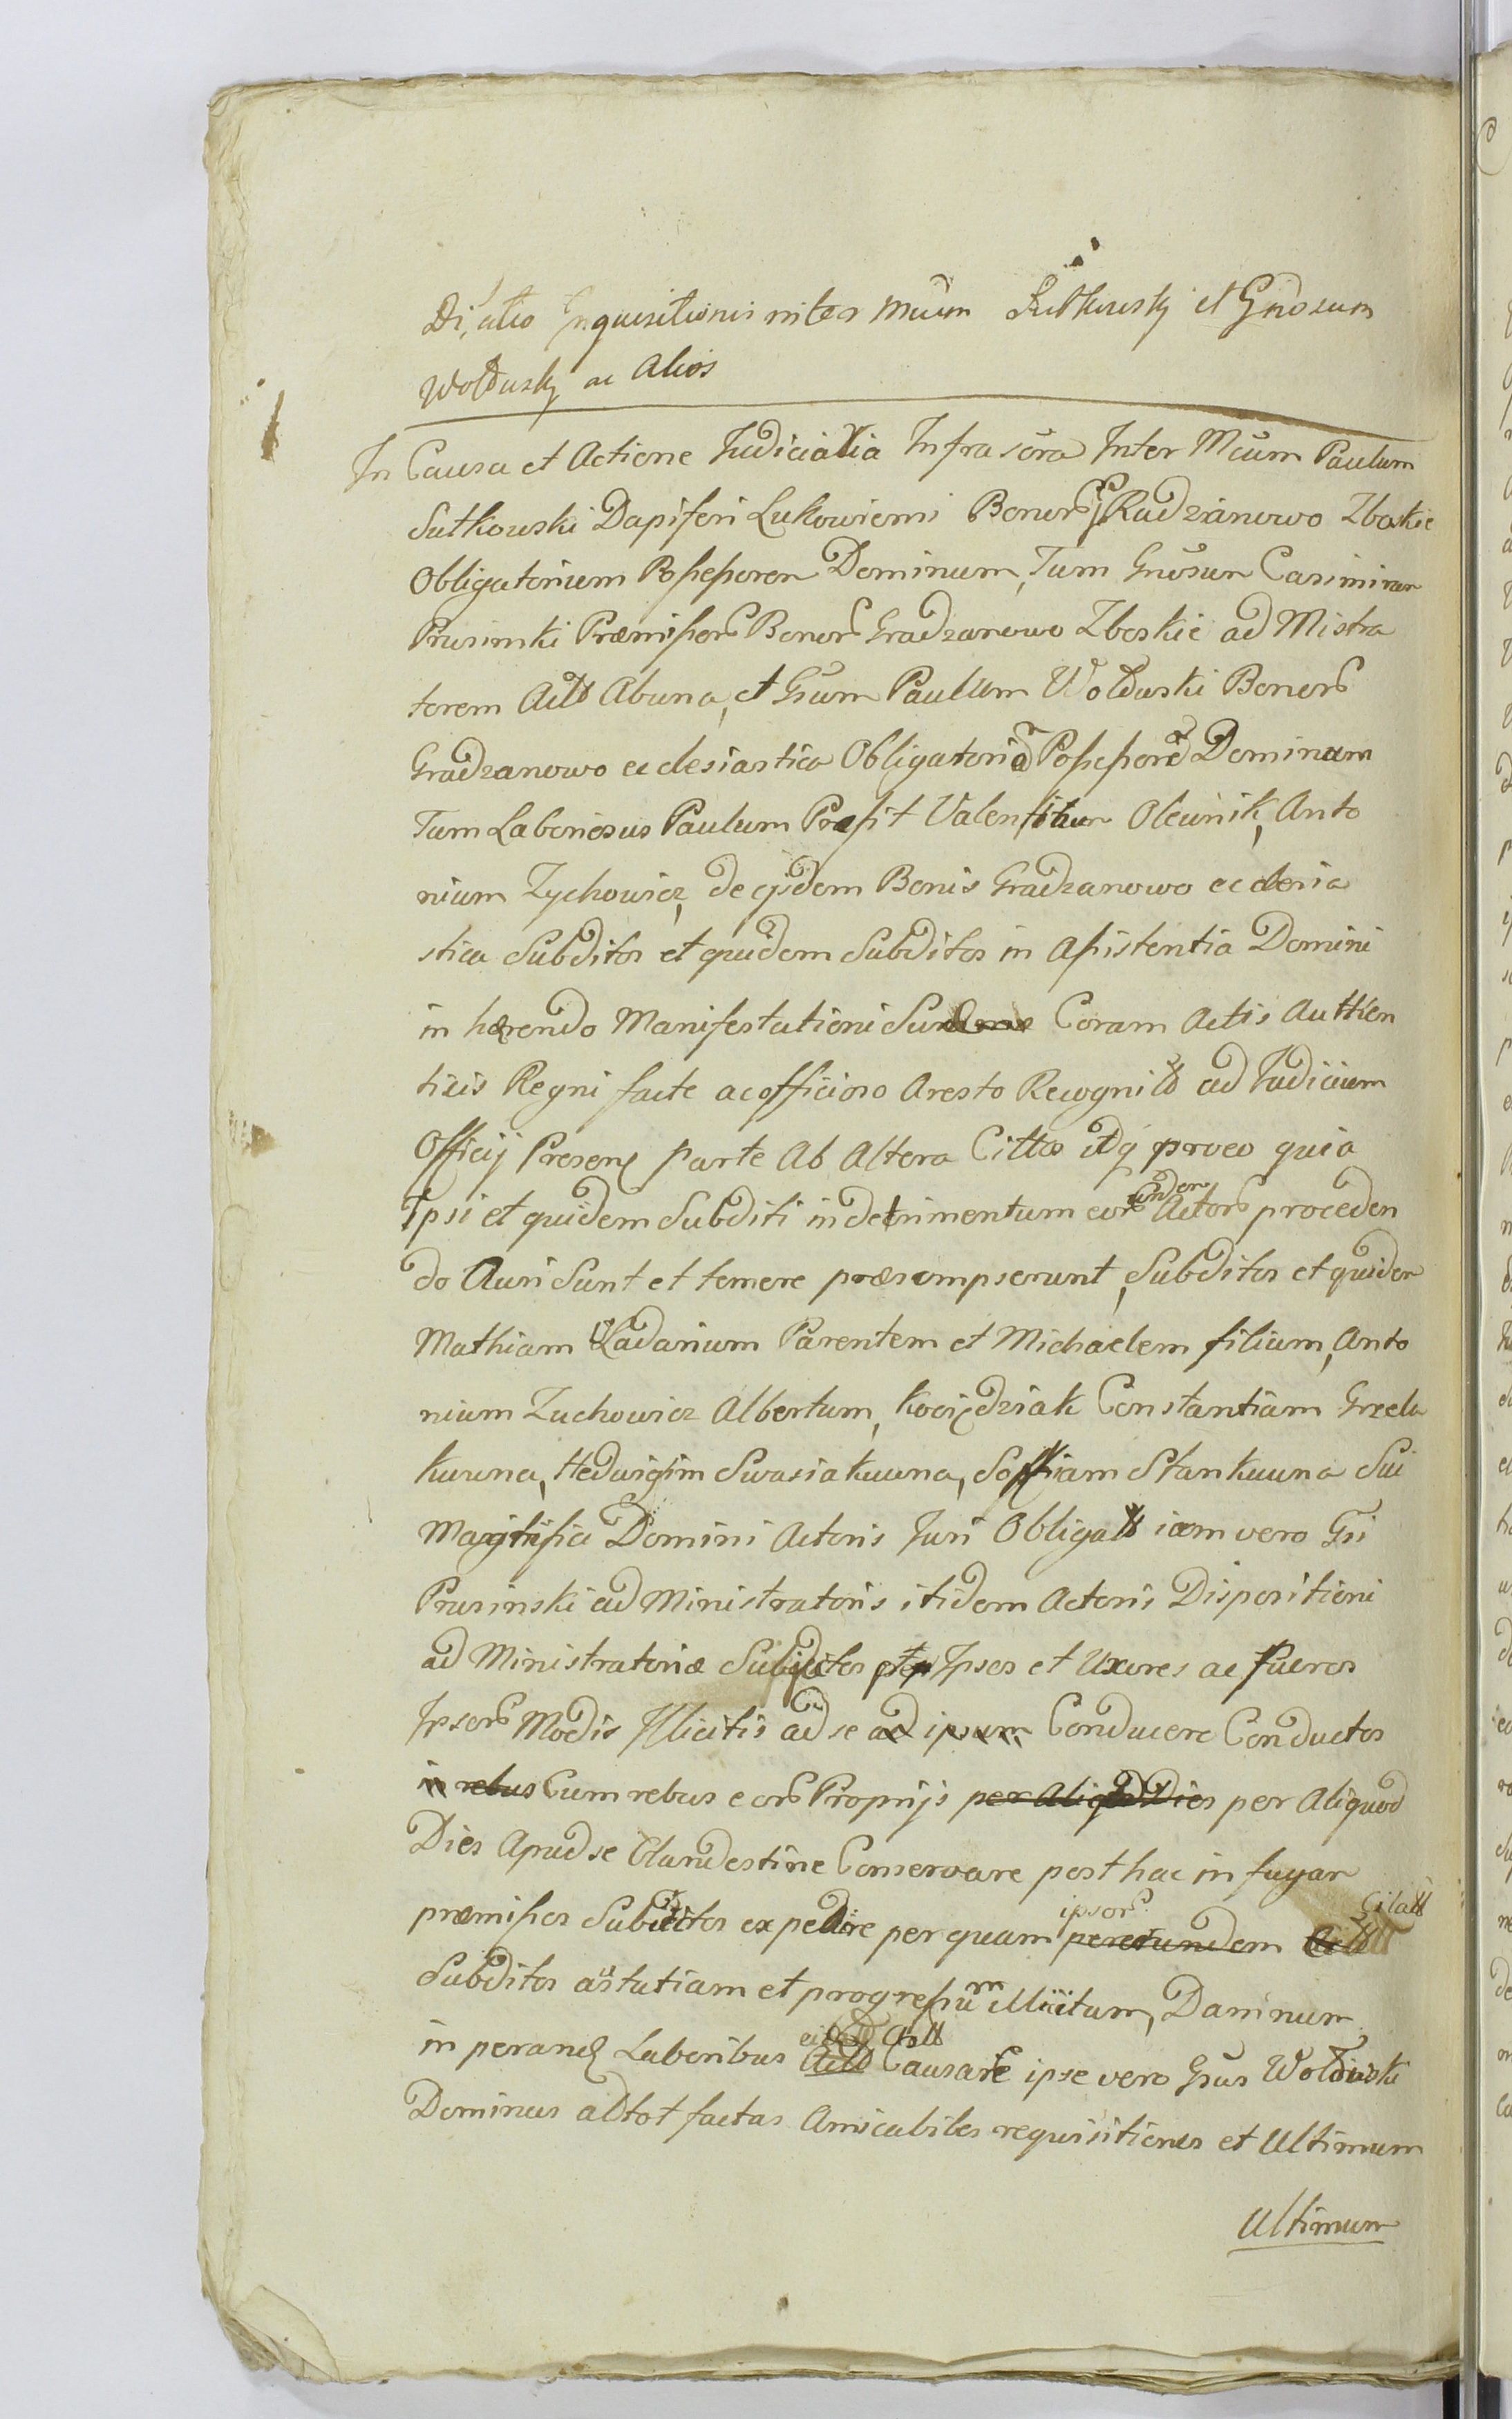 Inquisitionis inter Mcum Sutkowsky et Gnosum
Woldusky ac Alios
In Causa et Actione Judiciaria Infrascra Inter Mcum Paulum
Sutkowski Dapiferi Lukoviemi Bonorũ Radzianowo Zboskie
Obligatorium Possessoren Dominum, Tum Gnosum Casimirum
Prusimki Præmissorũ Bonorũ Gradzanowo Zboskie ad Mistra
torem Actt Abuna, et Gsum Paullum Wolduski Bonorũ
Gradzanowo ecclesiastica Obligatoriũ Possessorẽ Dominum
Tum Laboriosus Paulum Prefit Valentinum Olewnik, Anto
nium Zychowicz, de ejsdem Bonis Gradzanowo ecclesia
stica Subditos et quidem Subditos in Assistentia Domini
in hærendo Manifestationi Suæ Coram Actis Authen
ticis Regni facte ac officioso Aresto Recognitt ad Judicium
Officij Presenς parte Ab Altera Cittos idq̃ proeo quia
Ipsi et quidem Subditi in detrimentum eorũ undem Actorũ proceden
do Auri Sunt et temere præsumpserunt, Subditos et quidem
Mathiam Wladarium Parentem et Michaelem filium, Anto
nium Zuchowicz Albertum, Kociędziak Constantiam Grzela
kuwna, Hedwigim Swasiakuwna, Soffiam Stankuwna Sui
Domini Actoris Juri Obligatt iam vero Gsi
Prusinski ad Ministratoris itidem Actoris Dispositioni
ad Ministratoriæ Subjectos Ipsos et Uxores ac Pueros
Ipsorũ Modis Illicitis ad se ad ipsum Conducere Conductos
in rebus Cum rebus eorũ Proprijs per Aliquod Dies per Aliquod
Dies Apud se Clandestine Conservare post hac in fugam
præmissos Subditos expedire per quam ipsorũ Citatt
Subditos astutiam et progressum illicitum, Damnum
in peranδ Laboribus Actt Causare ipse vero Gsus Wolduski
Dominus ad tot factas Amicabiles requisitiones et Ultimum
Ultimum